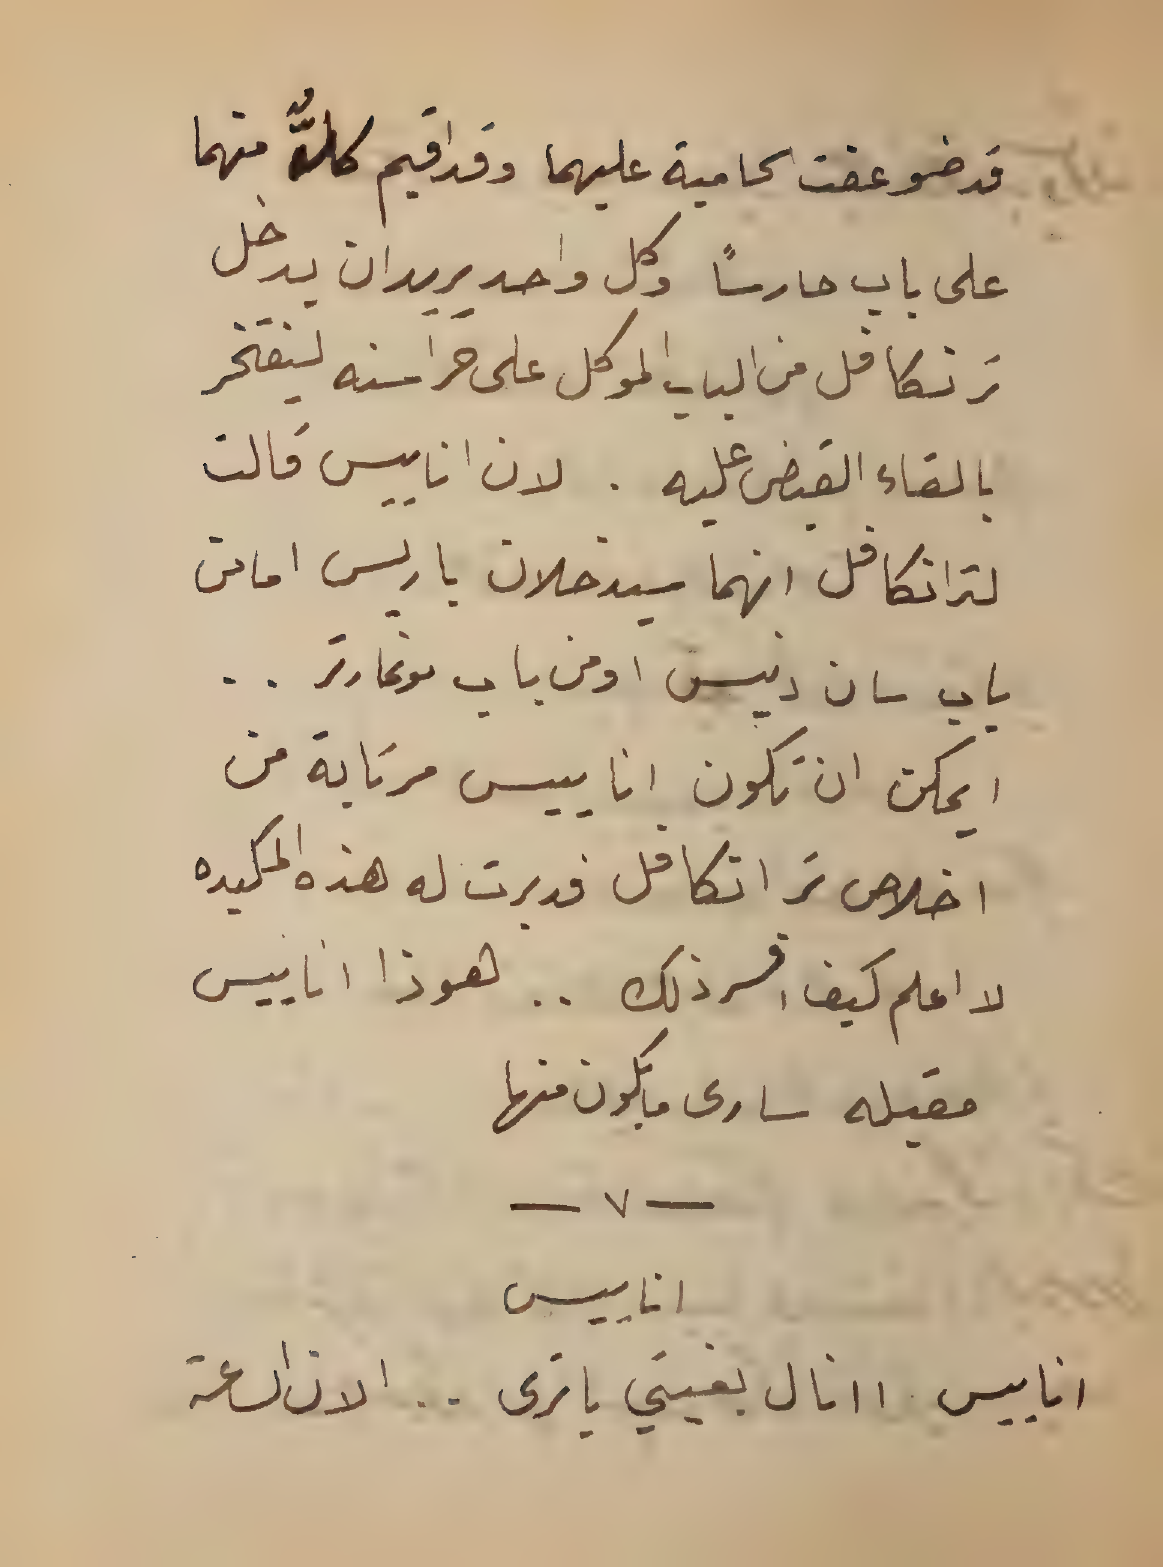 قد ضوعفت الحامية عليهما وقد اقيم كلٌّ منهما
على باب حارسًا وكل واحد يريد ان يدخل
ترنكافل من الباب الموكل على حراسته ليفتخر
بالقاء القبض عليه . لان انابيس قالت
لترانكافل انهما سيدخلان باريس اما من
باب سان دنيس او من باب مونمارتر ..
ايمكن ان تكون انابيس مرتابة من
اخلاص ترانكافل فدبرت له هذه المكيده
لا اعلم كيف افسر ذلك .. هوذا انابيس
مقبله سارى ما يكون منها
— ٧ —
انابيس
انابيس اانال بغيتي يا ترى .. الان الساعة